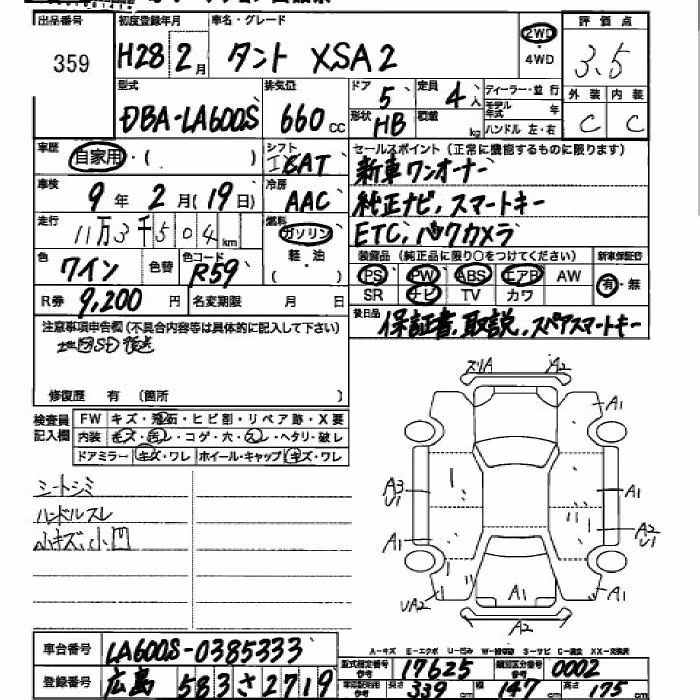 出品番号 359
初度登録年月 H28 2月
車名・グレード タント XSA2
2WD ・ 4WD
評価点 3.5
外装 内装
C C
型式 DBA-LA600S
排気量 660cc
ドア 5
定員 4人
形状 HB
積載 kg
ディーラー・並行
モデル年式 年
ハンドル 左・右
車歴 自家用・( )
シフト
車検 9年2月(19日)
冷房 AAC
走行 11万3千504km
燃料 ガソリン 軽・油 ( )
色 ワイン
色替
色コード R59
R券 9,200円
名変期限 月 日
セールスポイント(正常に機能するものに限ります)
新車ワンオーナー
純正ナビ,スマートキー
ETC,バックカメラ
装備品(純正品に限り○をつけてください)
新車保証書
PS PW ABS エアB AW
SR ナビ TV カワ
有・無
後日品 保証書,取説,スペアスマートキー
注意事項申告欄(不具合内容等は具体的に記入して下さい)
修復歴 有 (箇所 )
検査員記入欄
FW キズ・飛石・ヒビ割・リペア跡・X要
内装 キズ・汚レ・コゲ・穴・スレ・ヘタリ・破レ
ドアミラー キズ・ワレ ホイール・キャップ キズ・ワレ
シートシミ
ハンドルスレ
小キズ、小凹
スリA A2
A1
A3 U1
A1
A2 U1
A1
UA2
A1
A1
A2
A-キズ E-エクボ U-凹み W-補修跡 S-サビ C-腐蝕 XX-交換済
車台番号 LA600S-0385333
登録番号 広島 583 さ 2719
型式指定番号 17625
類別区分番号 0002
長さ 339cm
幅 147cm
高さ 175cm